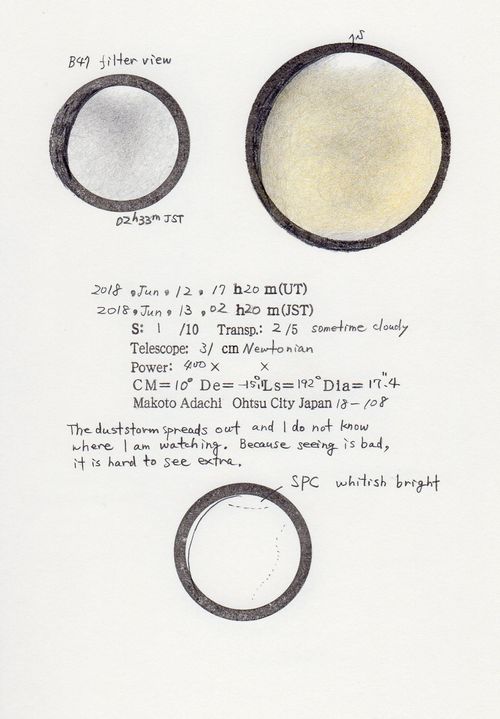 B47 filter view
↑S
02h33m JST
2018, Jun, 12, 17 h20 m(UT)
2018, Jun, 13, 02 h20 m(JST)
S: 1 /10 Transp.: 2 /5 sometime cloudy
Telescope: 31 cm Newtonian
Power: 400 × ×
CM=10° De= -15° Ls=192° Dia= 17".4
Makoto Adachi Ohtsu City Japan 18-108
The duststorm spreads out and I do not know
where I am watching. Because seeing is bad,
it is hard to see extra.
SPC whitish bright